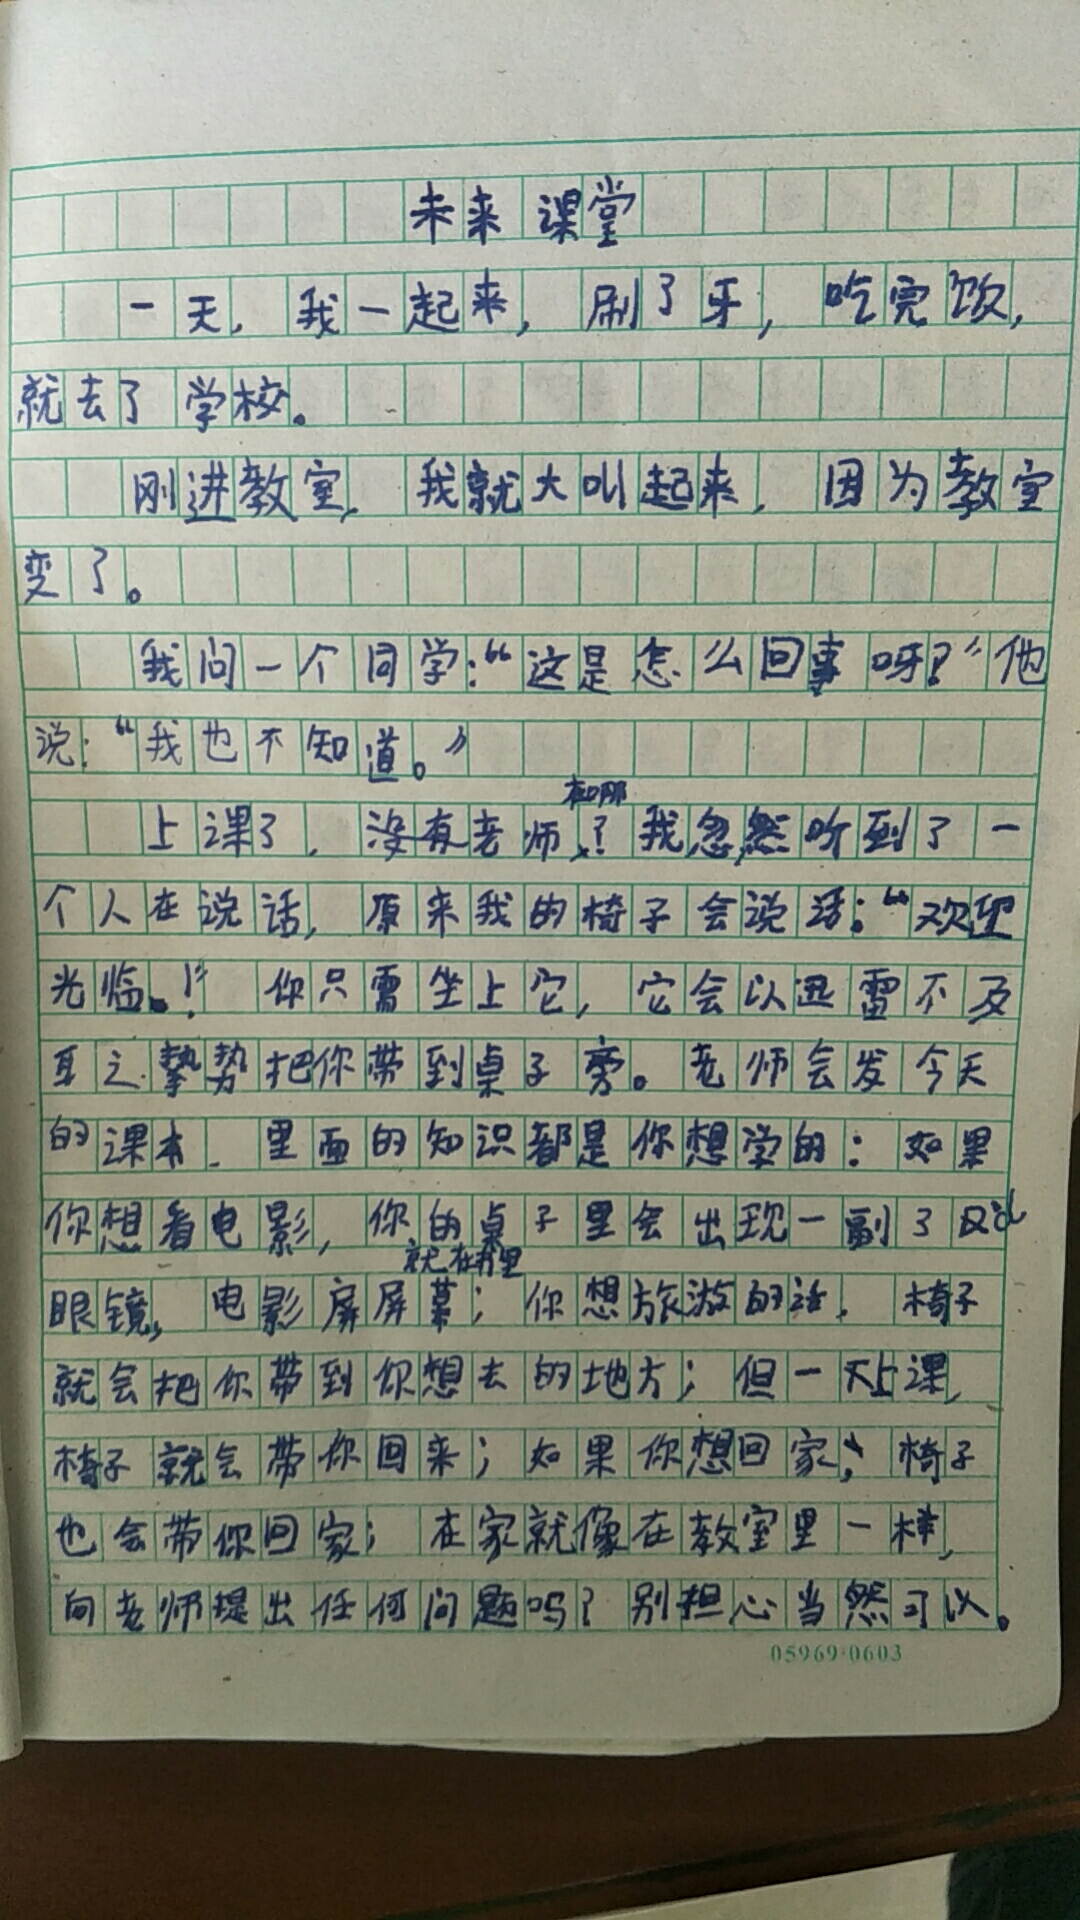 未来课堂
一天，我一起来，刷了牙，吃完饭，
就去了学校。
刚进教室，我就大叫起来，因为教室
变了。
我问一个同学：“这是怎么回事呀？”他
说：“我也不知道。”
在哪
上课了，没有老师？我忽然听到了一
个人在说话，原来我的椅子会说话：“欢迎
光临！”你只需坐上它，它会以迅雷不及
耳之势把你带到桌子旁。老师会发今天
的课本，里面的知识都是你想学的：如果
你想看电影，你的桌子里会出现一副3D
就在书里
眼镜，电影屏屏幕；你想旅游的话，椅子
就会把你带到你想去的地方；但一上课，
椅子就会带你回来；如果你想回家，椅子
也会带你回家；在家就像在教室里一样，
向老师提出任何问题吗？别担心当然可以。
05969·0603